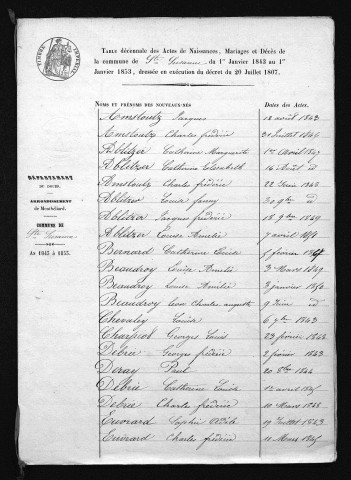 Table décennale des Actes de Naissances, Mariages et Décès de
la commune de Ste Suzanne, du 1er Janvier 1843 au 1er
Janvier 1853, dressée en exécution du décret du 20 Juillet 1807.
Noms et prénoms des nouveaux-nés
Dates des Actes.
Amstoutz Jacques 18 août 1843
Amstoutz Charles frédéric 31 Juillet 1844
Ablitzer Catherine Marguerite 1er Août 1845
Ablitzer Catherine Elisabeth 16 Août id
Amstoutz Charles frédéric 22 Juin 1846
Ablitzer Louise fanny 30 9bre id
Ablitzer Jacques frédéric 18 9bre 1849
Ablitzer Louise Amélie 7 avril 1851
Bernard Catherine Louise 5 février
Beaudroy Louise Amélie 3 Mars 1849
Beaudroy Louise Amélie 3 janvier 1850
Beaudroy Charles auguste 9 Juin id
Chevaley Louise 6 7bre 1843
Charpiot Georges Louis 23 février 1844
Debrie Georges frédéric 2 février 1843
Deray Paul 20 8bre 1844
Debrie Catherine Louise 12 avril 1845
Debrie Charles frédéric 10 Mars 1848
Euvrard Sophie Adèle 19 Juillet 1843
Euvrard Charles frédéric 11 Mars 1845
DÉPARTEMENT
DU DOUBS.
ARRONDISSEMENT
de Montbéliard.
COMMUNE DE
Ste Suzanne
An 1843 à 1853.